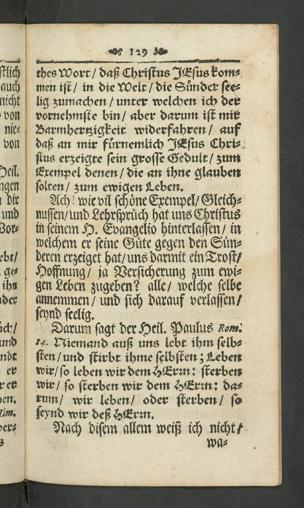 129
thes Wort / daß Christus JEsus kom-
men ist / in die Welt / die Sünder see-
lig zumachen / unter welchen ich der
vornehmste bin / aber darum ist mir
Barmhertzigkeit widerfahren / auf
daß an mir fürnemlich JEsus Chri-
stus erzeigte sein grosse Gedult / zum
Exempel denen / die an ihne glauben
solten / zum ewigen Leben.
Ach! wie vil schöne Exempel / Gleich-
nussen / und Lehrsprüch hat uns Christus
in seinem H. Evangelio hinterlassen / in
welchem er seine Güte gegen den Sün-
deren erzeiget hat / uns darmit ein Trost /
Hoffnung / ja Versicherung zum ewi-
gen Leben zugeben? alle / welche selbe
annemmen / und sich darauf verlassen /
seynd seelig.
Darum sagt der Heil. Paulus Rom.
14. Niemand auß uns lebt ihm selb-
sten / und stirbt ihme selbsten; Leben
wir / so leben wir dem HErrn: sterben
wir / so sterben wir dem HErrn: da-
rum / wir leben / oder sterben / so
seynd wir deß HErrn.
Nach disem allem weiß ich nicht /
wa-